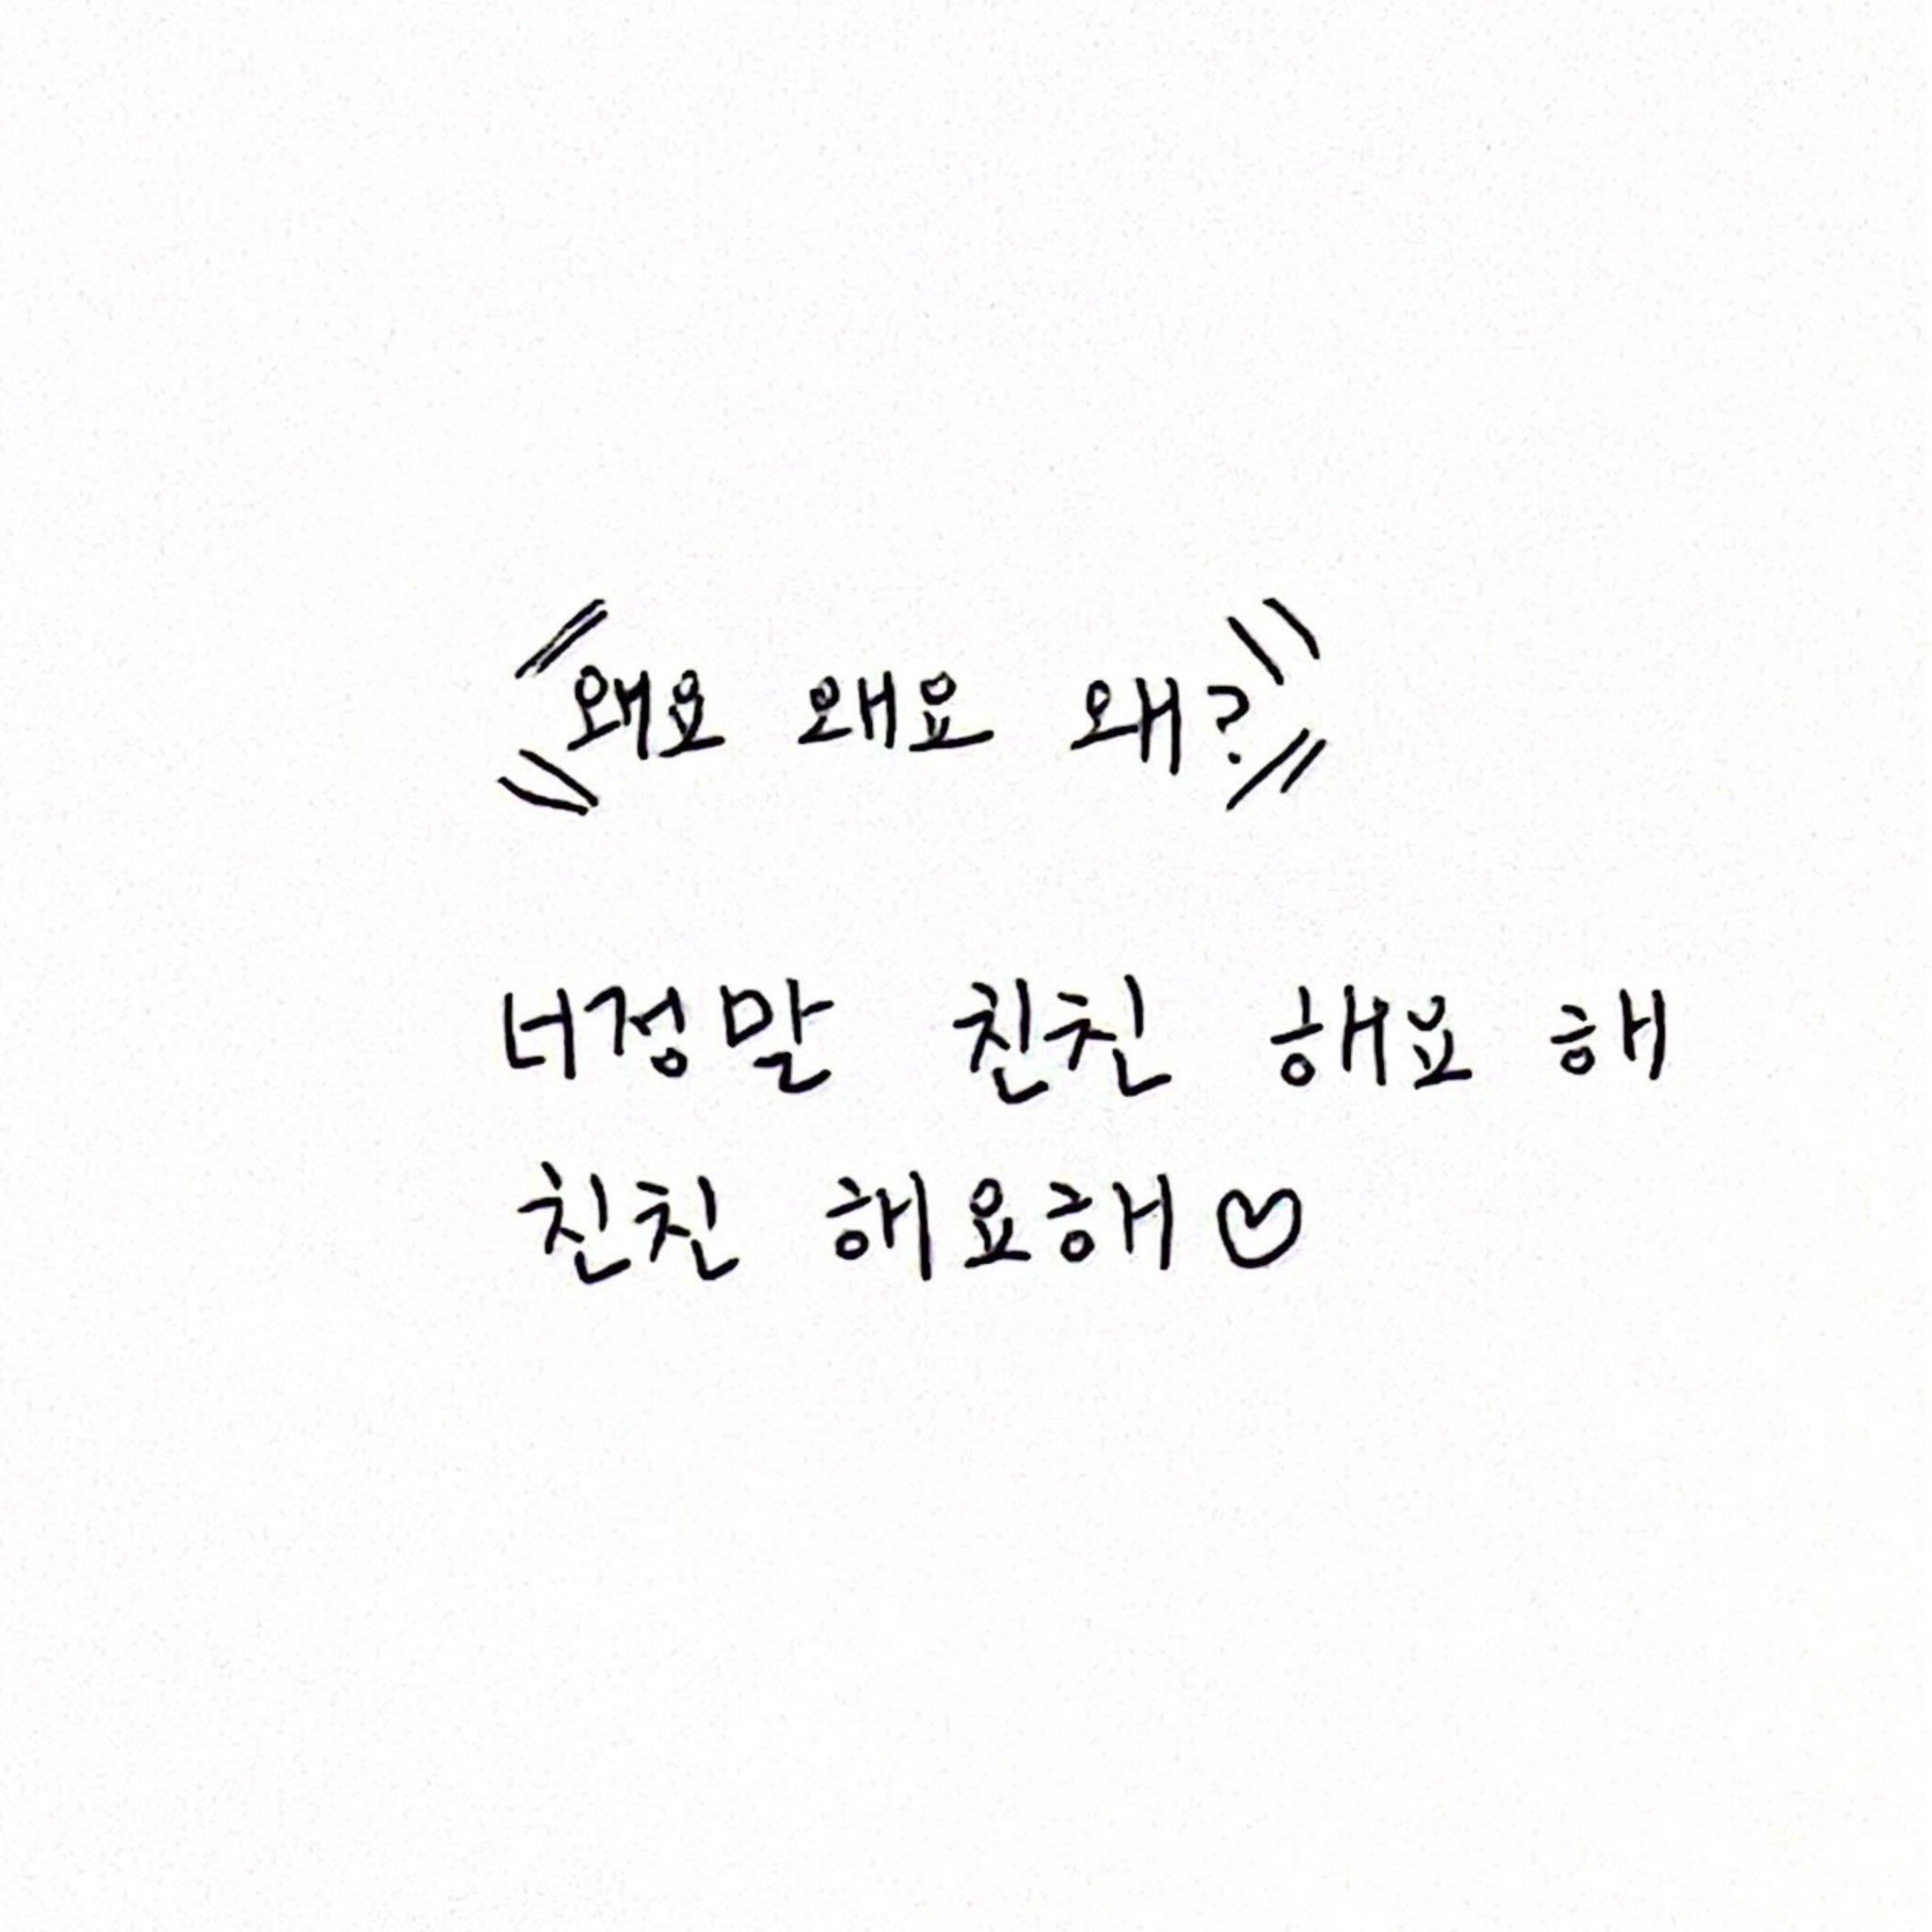 왜요 왜요 왜?
너정말 친친 해요 해
친친 해요해♡